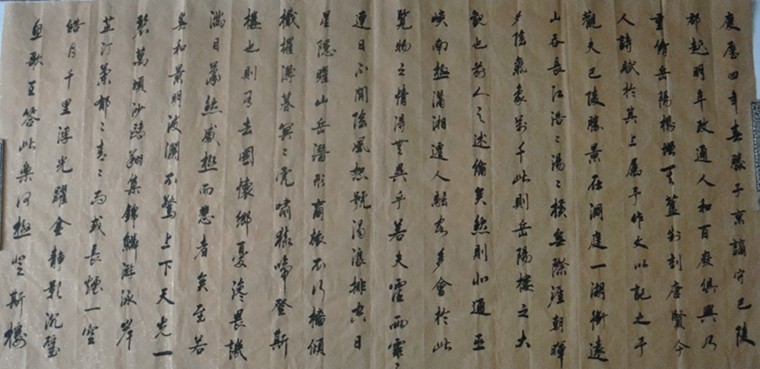 慶曆四年春滕子京謫守巴陵
郡越明年政通人和百廢俱興乃
重修岳陽樓增其舊制刻唐賢今
人詩賦於其上屬予作文以記之予
觀夫巴陵勝景在洞庭一湖銜遠
山吞長江浩〻湯〻橫無際涯朝暉
夕陰氣象萬千此則岳陽樓之大
觀也前人之述備矣然則北通巫
峽南極瀟湘遷人騷客多會於此
覽物之情得無異乎若夫霪雨霏〻
連日不開陰風怒號濁浪排空日
星隱曜山岳潛形商旅不行檣傾
楫摧薄暮冥〻虎嘯猿啼登斯
樓也則有去國懷鄉憂讒畏譏
滿目蕭然感極而悲者矣至若
春和景明波瀾不驚上下天光一
碧萬頃沙鷗翔集錦鱗游泳岸
芷汀蘭郁〻青〻而或長煙一空
皓月千里浮光躍金靜影沉璧
漁歌互答此樂何極登斯樓